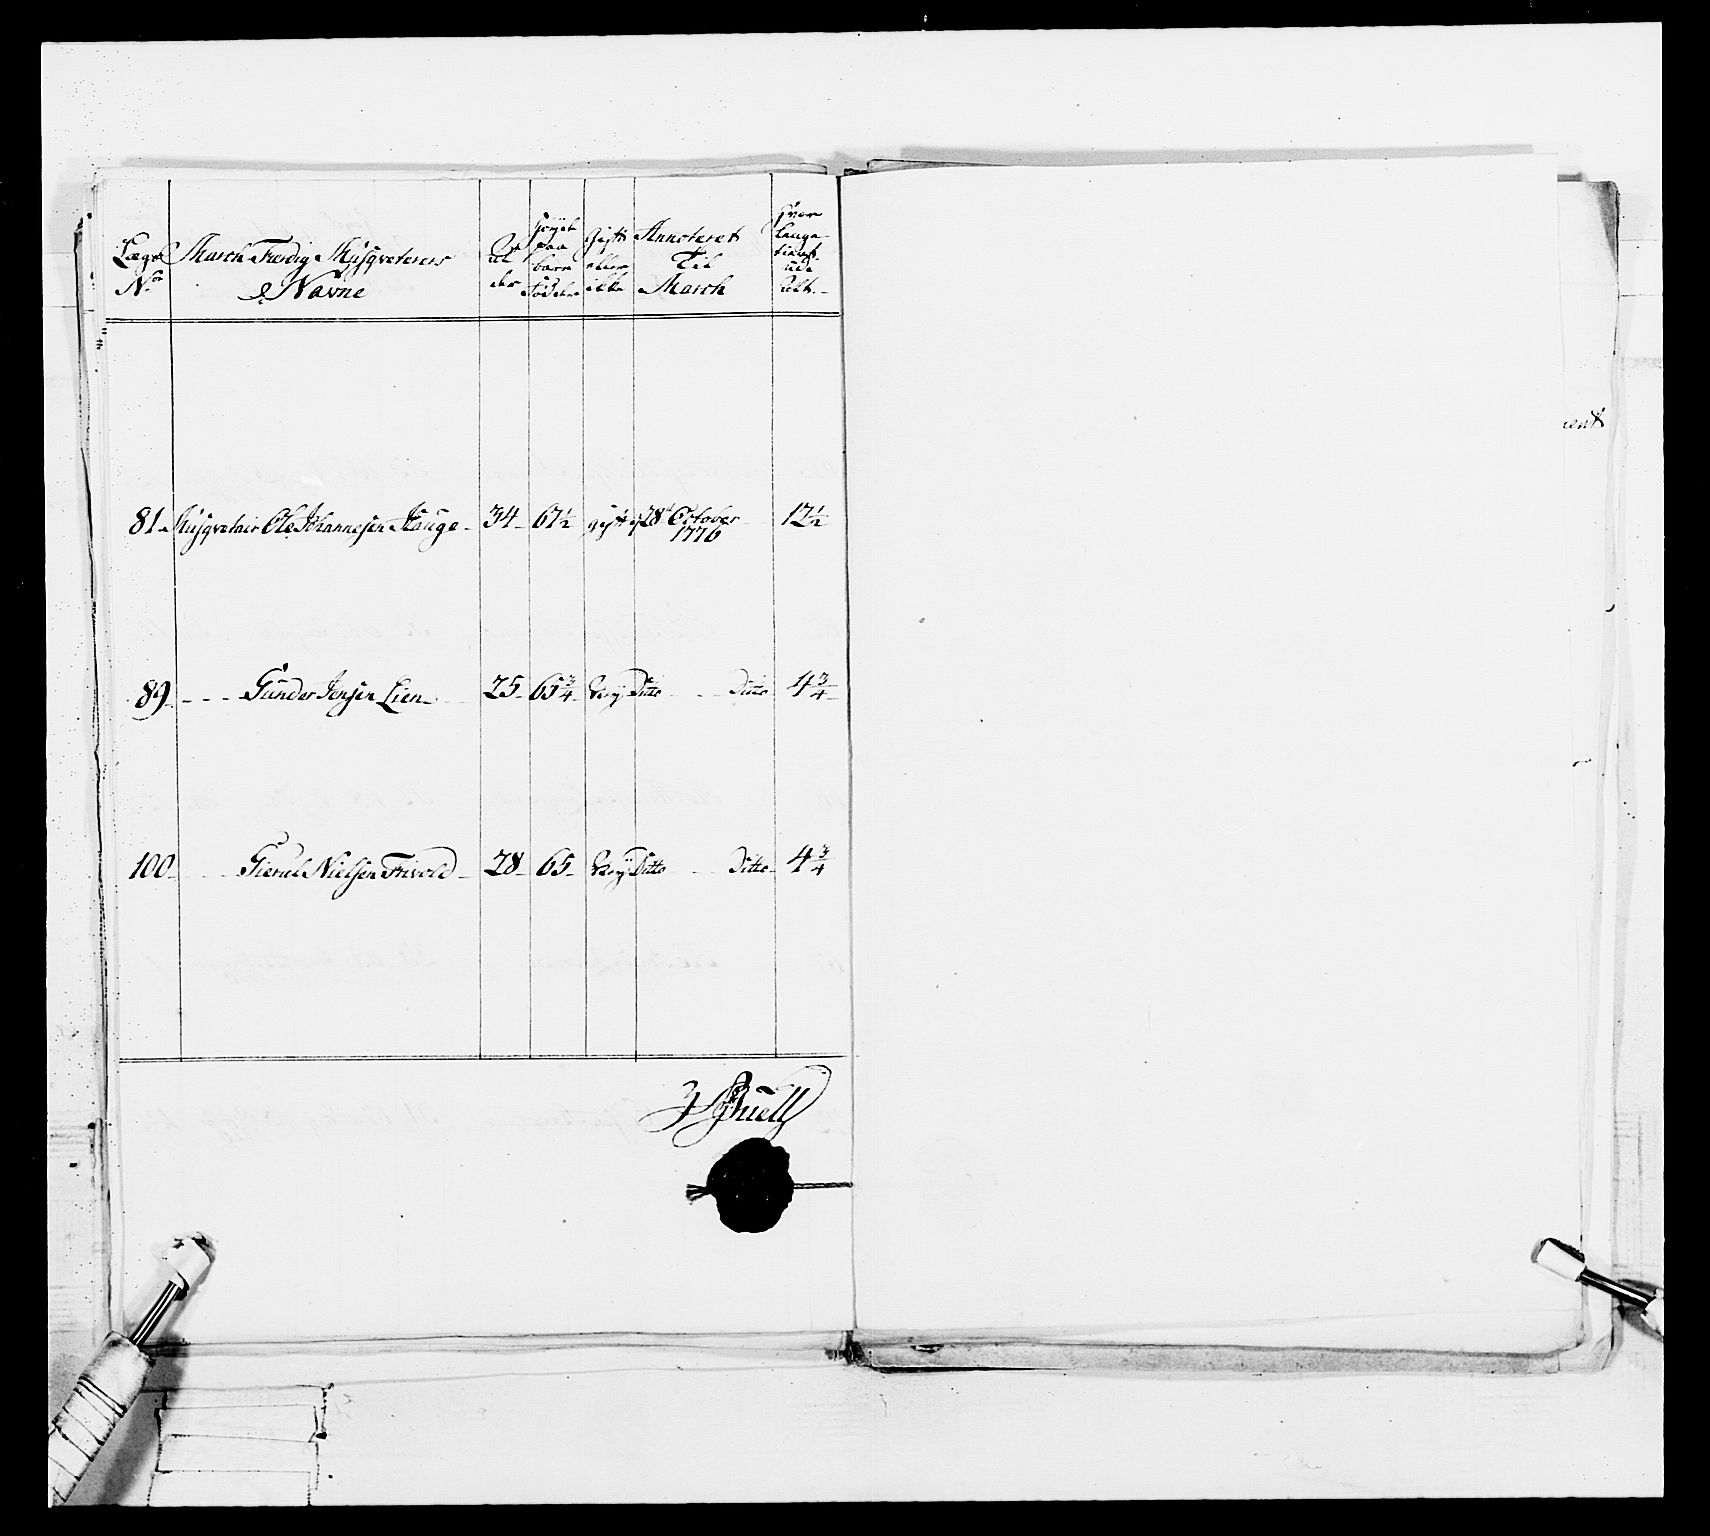 Lægd No. | March Færdig Musqveterers Navne | Alder | Høyde paa bare Fødder | Gift eller ikke | Annoteret Til March | Hvor lenge tient ude Udt.
81. Musqvetair Ole Johannesen Hauge - 34 - 67½ gift d 28d October 1776 12½
89 - - - Gunder Jensen Lien - 25 - 65¾ - Ugift Ditto - - Ditto 4¾
100 - - - Gierul Nielsen Trivold - 28 - 65 - Ugift Ditto - - Ditto - 4¾
Buell